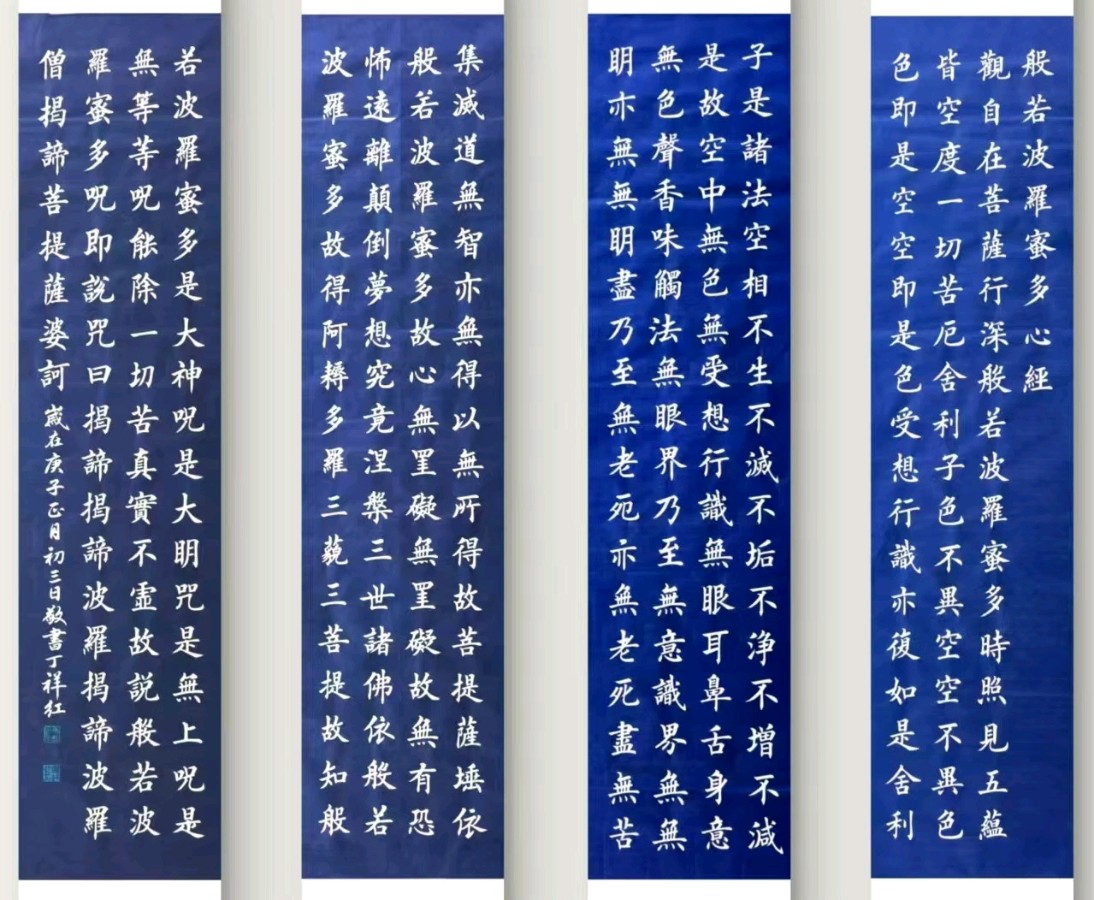 般若波羅蜜多心經
觀自在菩薩行深般若波羅蜜多時照見五蘊
皆空度一切苦厄舍利子色不異空空不異色
色即是空空即是色受想行識亦復如是舍利
子是諸法空相不生不滅不垢不淨不增不減
是故空中無色無受想行識無眼耳鼻舌身意
無色聲香味觸法無眼界乃至無意識界無無
明亦無無明盡乃至無老死亦無老死盡無苦
集滅道無智亦無得以無所得故菩提薩埵依
般若波羅蜜多故心無罣礙無罣礙故無有恐
怖遠離顛倒夢想究竟涅槃三世諸佛依般若
波羅蜜多故得阿耨多羅三藐三菩提故知般
若波羅蜜多是大神呪是大明咒是無上呪是
無等等呪能除一切苦真實不虛故説般若波
羅蜜多呪即說咒曰揭諦揭諦波羅揭諦波羅
僧揭諦菩提薩婆訶
歲在庚子正月初三日敬書丁祥红